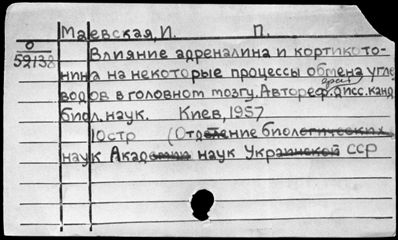 Маевская, И. П.
О
52138
Влияние адреналина и кортикото-
нина на некоторые процессы обмена угле
водов в головном мозгу. Автореф. дисс. канд
биол. наук. Киев, 1957
10стр (Отделение биологических
наук Академии наук Украинской ССР